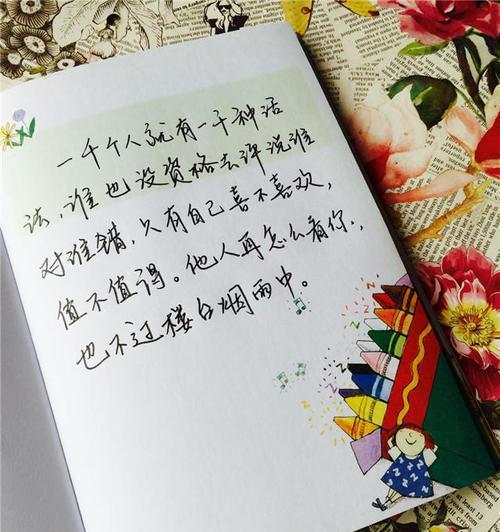 一千个人就有一千种活
法，谁也没资格去评说谁
对谁错，只有自己喜不喜欢，
值不值得。他人再怎么看你，
也不过楼台烟雨中。